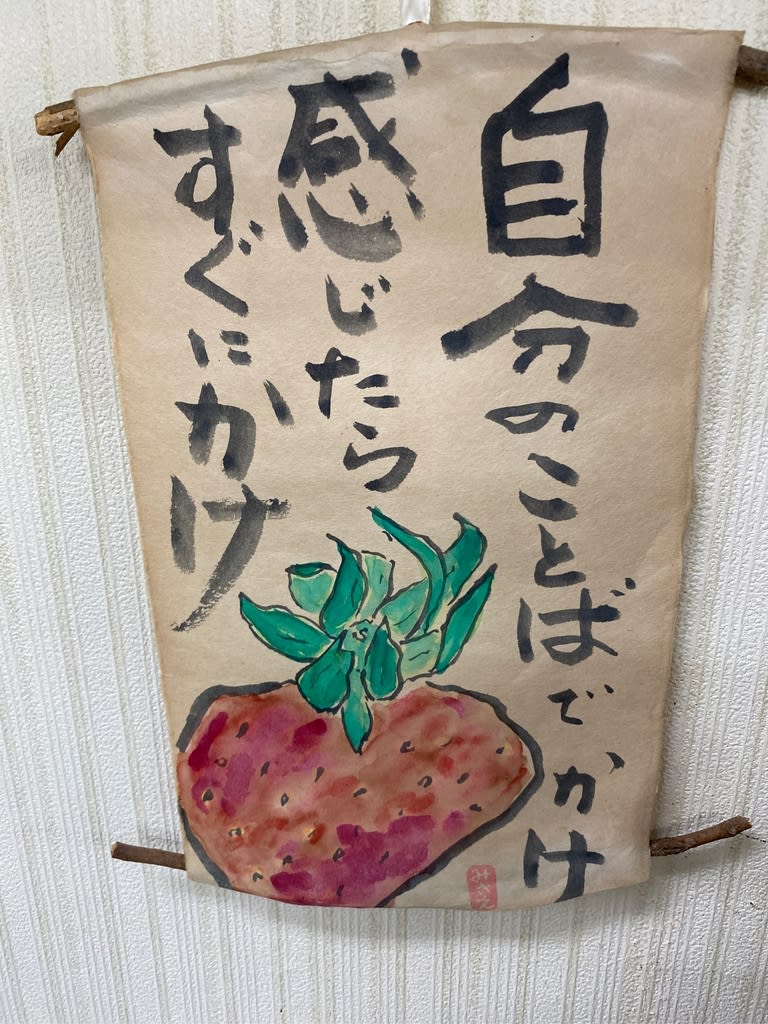 自分のことばでかけ
感じたら
すぐにかけ